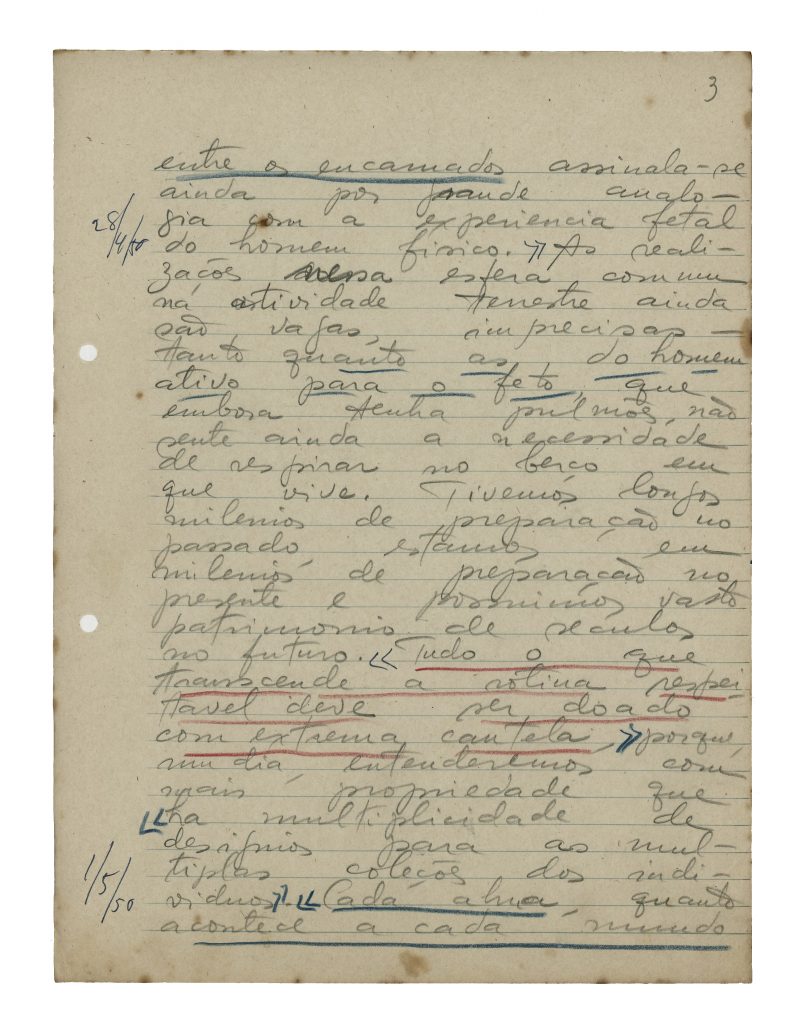 3
entre os encarnados assinala-se
ainda por grande analo-
gia com a experiencia fetal
28/4/50
do homem fisico. » As reali-
zações nessa esfera commum
na atividade terrestre ainda
são vagas, imprecisas —
tanto quanto as, do homem
ativo para o feto, que
embora tenha pulmões, não
sente ainda a necessidade
de respirar no berço em
que vive. Tivemos longos
milenios de preparação no
passado, estamos em
milenios de preparação no
presente e possuimos vasto
patrimonio de séculos
no futuro. « Tudo o que
transcende a rotina respei-
tavel deve ser doado
com extrema cautela, » porque,
um dia, entenderemos com
mais propriedade que
« ha multiplicidade de
designios para as mul-
tiplas coleções dos indi-
1/5/50
viduos ». « Cada alma, quanto
acontece a cada mundo